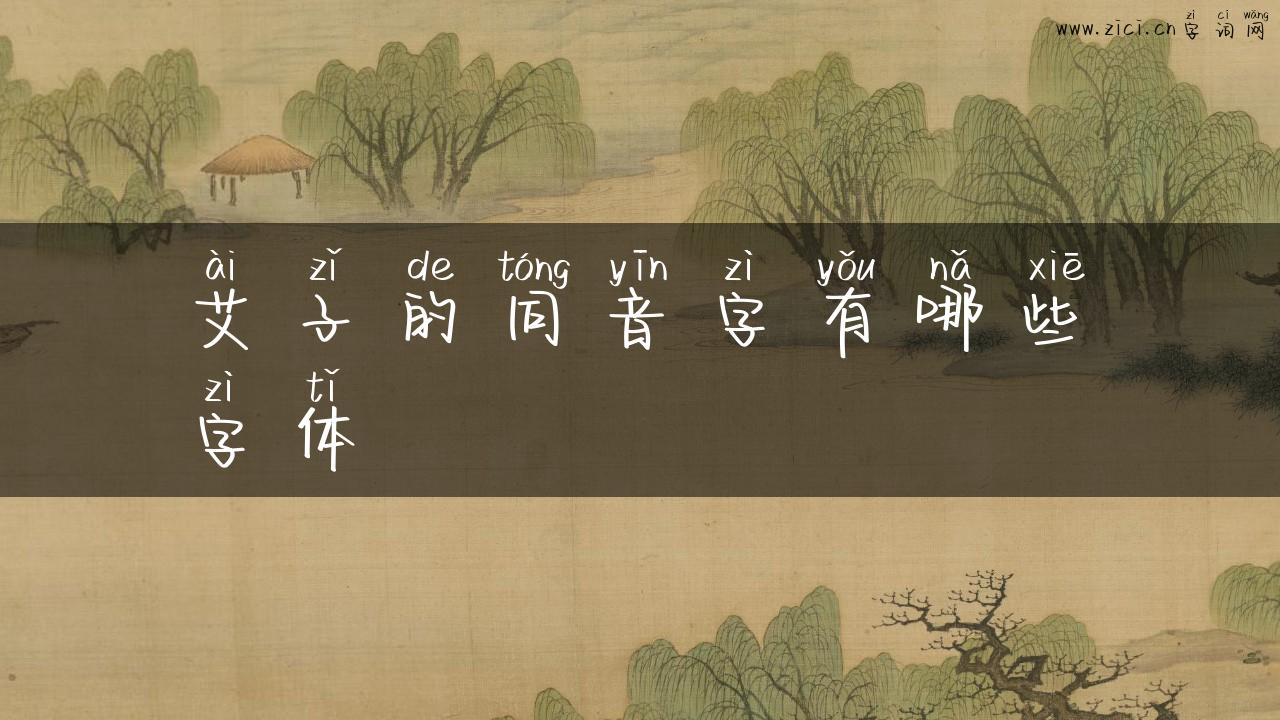 zì cí wǎng
www.zici.cn 字 词 网
ài zǐ de tóng yīn zì yǒu nǎ xiē
艾 子 的 同 音 字 有 哪 些
zì tǐ
字 体